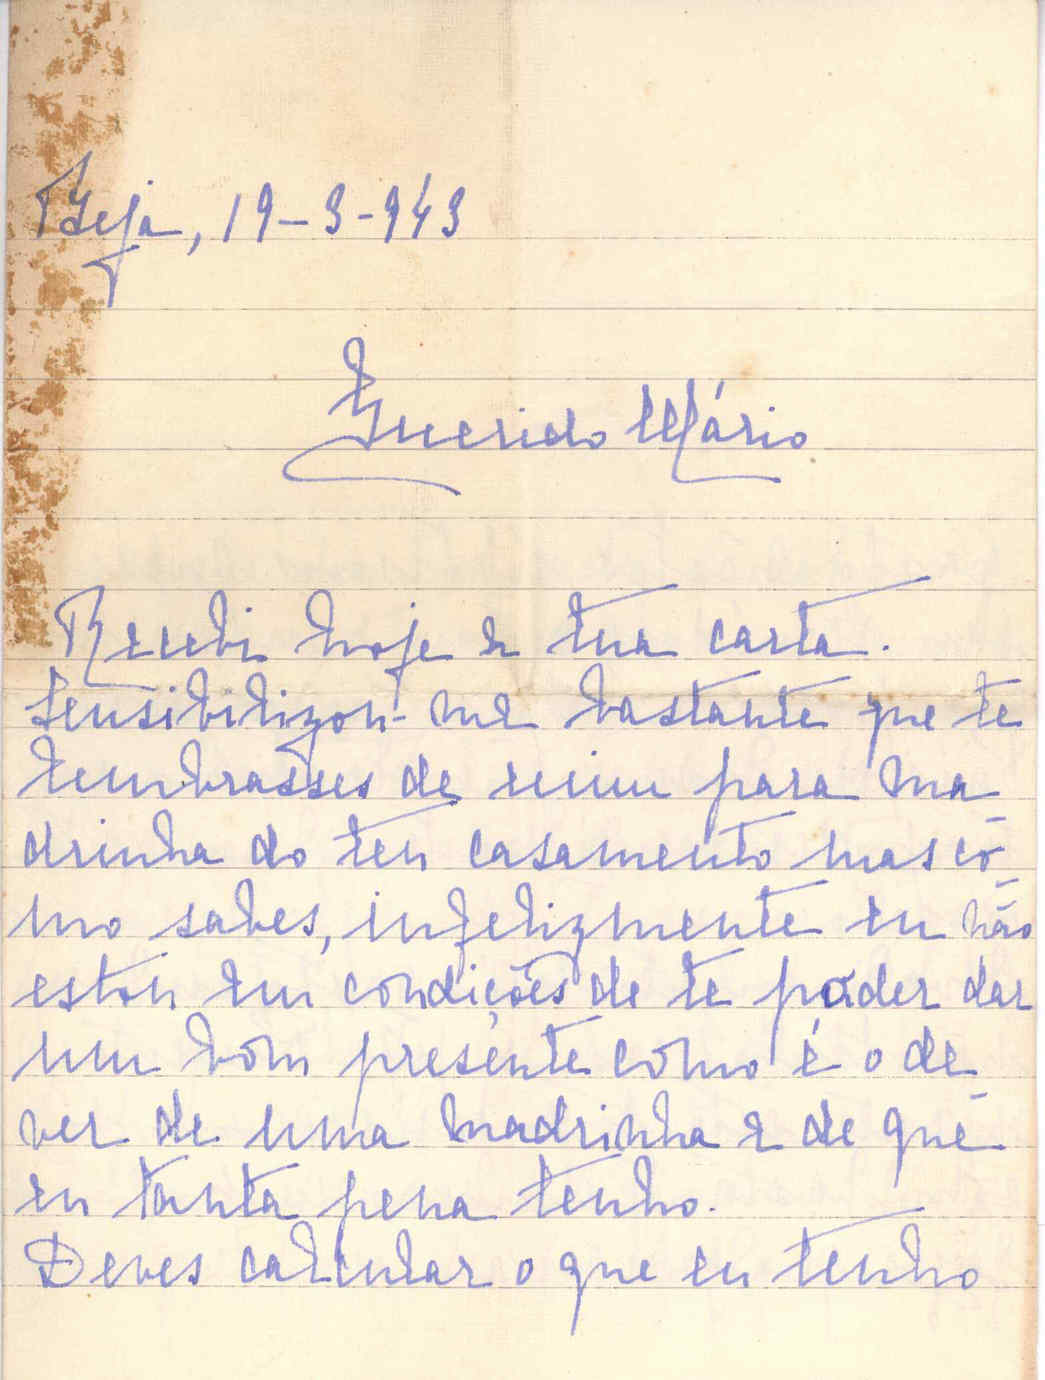 Beja, 19-3-943
Querido Mário
Recebi hoje a tua carta.
Sensibilizou-me bastante que te
lembrasses de mim para ma
drinha do teu casamento mas co
mo sabes, infelizmente eu não
estou em condições de te poder dar
um bom presente como é o de
ver de uma madrinha e de que
eu tanta pena tenho.
Deves calcular o que eu tenho